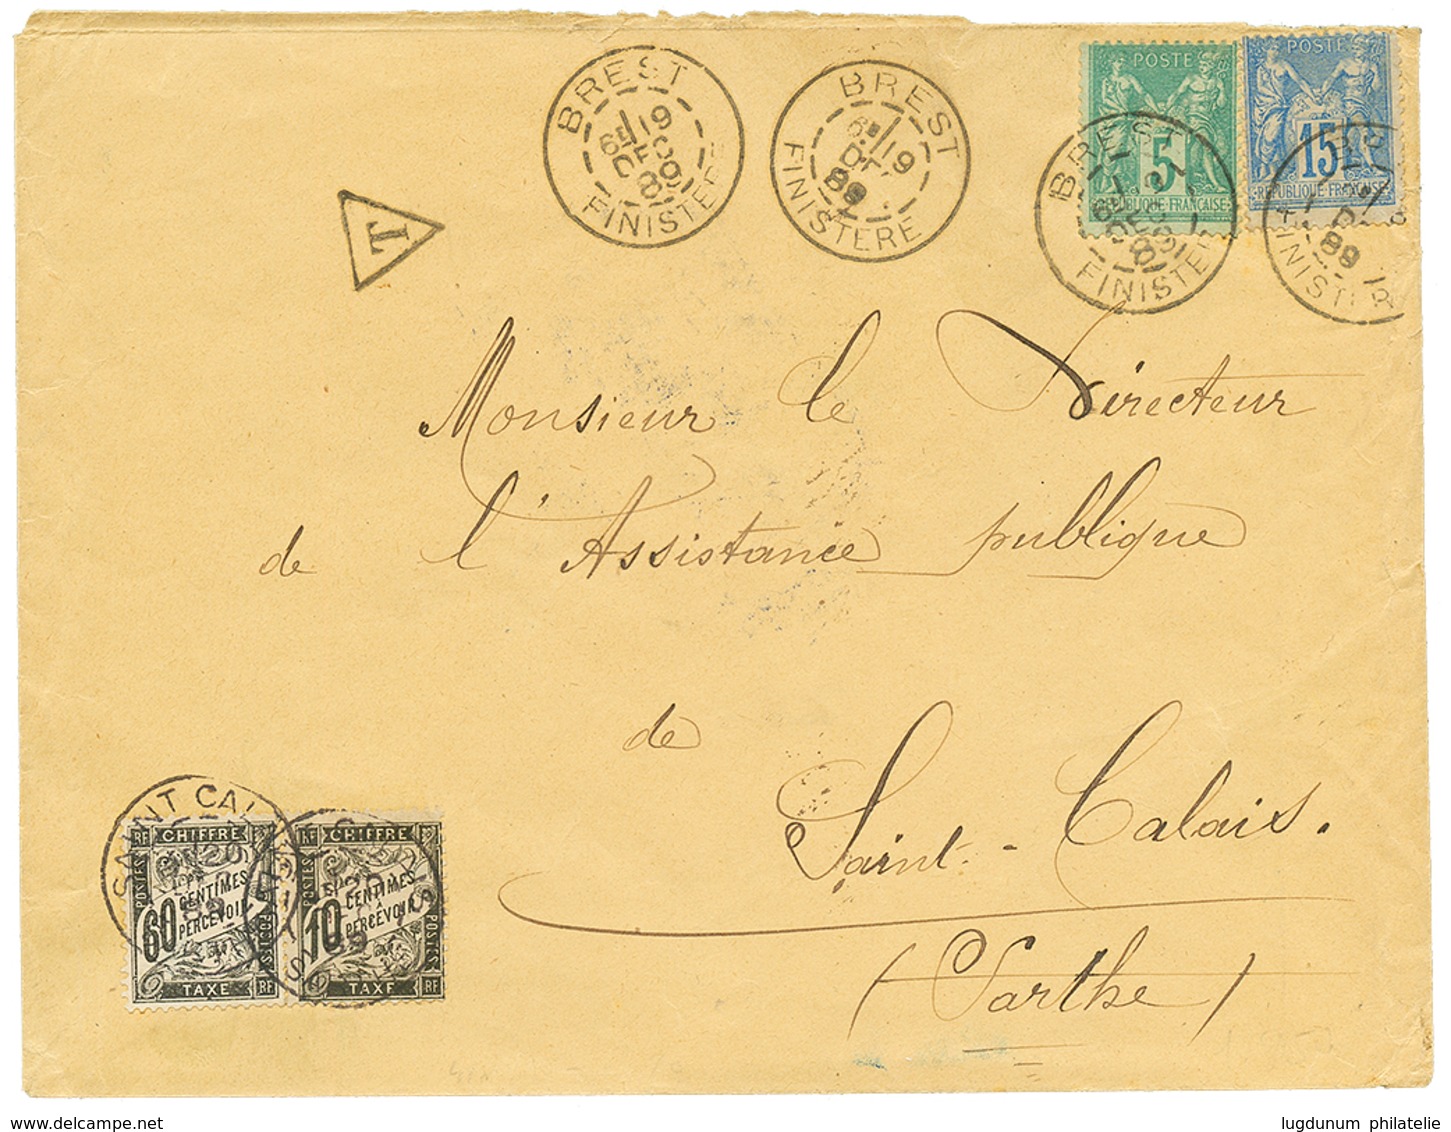 BREST
6E /19
DEC
89
FINISTERE
BREST
6E /19
DEC
89
FINISTERE
POSTE
5
REPUBLIQUE FRANCAISE
BREST
DEC
FINISTERE
POSTE
15
REPUBLIQUE FRANCAISE
89
FINISTER
T
Monsieur le Directeur
de l'Assistance publique
de
Saint-Calais.
(Sarthe)
SAINT CAL
20
89
RF CHIFFRE
POSTES
60 CENTIMES
À
PERCEVOIR
POSTES
TAXE RF
RF CHIFFRE
POSTES
10 CENTIMES
À
PERCEVOIR
POSTES
TAXE RF
lugdunum philatelie